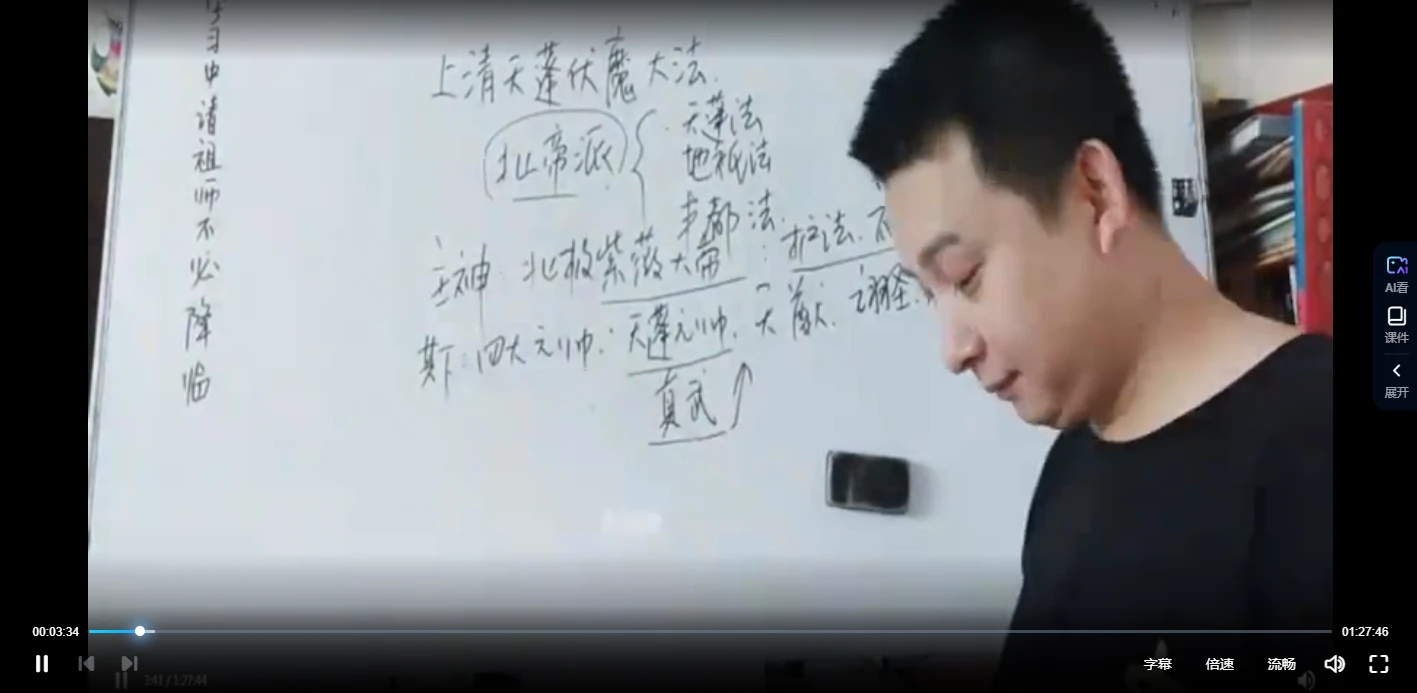 学习中请祖师不必降临
上清天蓬伏魔大法.
北帝派
天蓬法
地祇法
酆都法.
主神: 北极紫薇大帝: 护法.
其下: 四大元帅: 天蓬元帅. 天猷. 翊圣.
真武
AI看
课件
展开
00:03:34
01:27:46
字幕
倍速
流畅
3:41 / 1:27:44